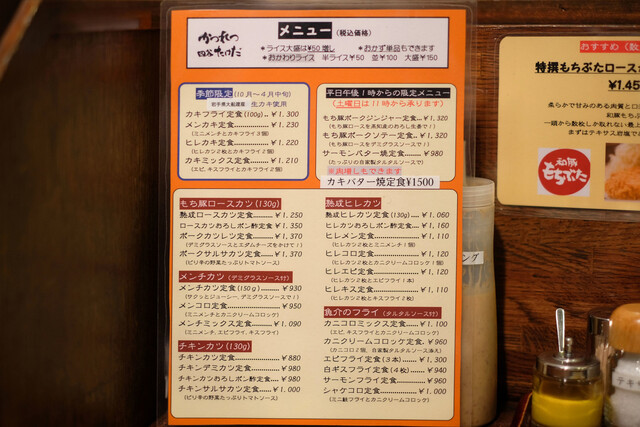 かつれつ
四谷たけだ
メニュー (税込価格)
＊ライス大盛は¥50増し ＊おかず単品もできます
＊おかわりライス 半ライス¥50 並¥100 大盛¥150
季節限定 (10月〜4月中旬)
岩手県大船渡産 生カキ使用
カキフライ定食(100g)...¥1.300
メンカキ定食...¥1.230
(ミニメンチとカキフライ3個)
ヒレカキ定食...¥1.220
(ヒレカツ2枚とカキフライ2個)
カキミックス定食...¥1.210
(エビ、キスフライとカキフライ2個)
平日午後1時からの限定メニュー
(土曜日は11時から承ります)
もち豚ポークジンジャー定食...¥1.
(もち豚ロースを高知産のおろし生姜で!)
もち豚ポークソテー定食...¥1.
(もち豚ロースをデミグラスソースで!)
サーモンバター焼定食...¥980
(たっぷりの自家製タルタルソースで)
※肉増しもできます
カキバター焼定食¥1500
もち豚ロースカツ(130g)
熟成ロースカツ定食...¥1.250
ロースカツおろしポン酢定食...¥1.350
ポークカツレツ定食...¥1,370
(デミグラスソースとエダムチーズをかけて!)
ポークサルサカツ定食...¥1,370
(ピリ辛の野菜たっぷりトマトソース)
メンチカツ (デミグラスソース付)
メンチカツ定食(150g)...¥930
(サクッとジューシー、デミグラスソースで!)
メンコロ定食...¥950
(ミニメンチとカニクリームコロッケ)
メンチミックス定食...¥1.090
(ミニメンチ、エビフライ、キスフライ)
チキンカツ(130g)
チキンカツ定食...¥880
チキンデミカツ定食...¥980
チキンカツおろしポン酢定食...¥980
チキンサルサカツ定食...¥1.000
(ピリ辛の野菜たっぷりトマトソース)
熟成ヒレカツ
熟成ヒレカツ定食(130g)...¥1.060
ヒレカツおろしポン酢定食...¥1,160
ヒレメン定食...¥1,110
(ヒレカツ2枚とミニメンチ1個)
ヒレコロ定食...¥1,120
(ヒレカツ2枚とカニクリームコロッケ1個)
ヒレエビ定食...¥1,120
(ヒレカツ2枚とエビフライ1本)
ヒレキス定食...¥1,110
(ヒレカツ2枚とキスフライ2枚)
魚介のフライ (タルタルソース付)
カニコロミックス定食...¥1.100
(エビ、キスフライとカニクリームコロッケ)
カニクリームコロッケ定食.¥960
(カニコロ2個、自家製タルタルソース添え)
エビフライ定食(3本)...¥1,300
白ギスフライ定食(4枚)...¥940
サーモンフライ定食...¥960
シャケコロ定食...¥1.000
(ミニ鮭フライとカニクリームコロッケ)
おすすめ (数
特撰もちぶたロース
¥1.45
柔らかで甘みのある肉質と口
和豚もち
一頭から数枚しか取れない最上
まずはテキサス岩塩で
和豚
もちぶた
ング
チキ